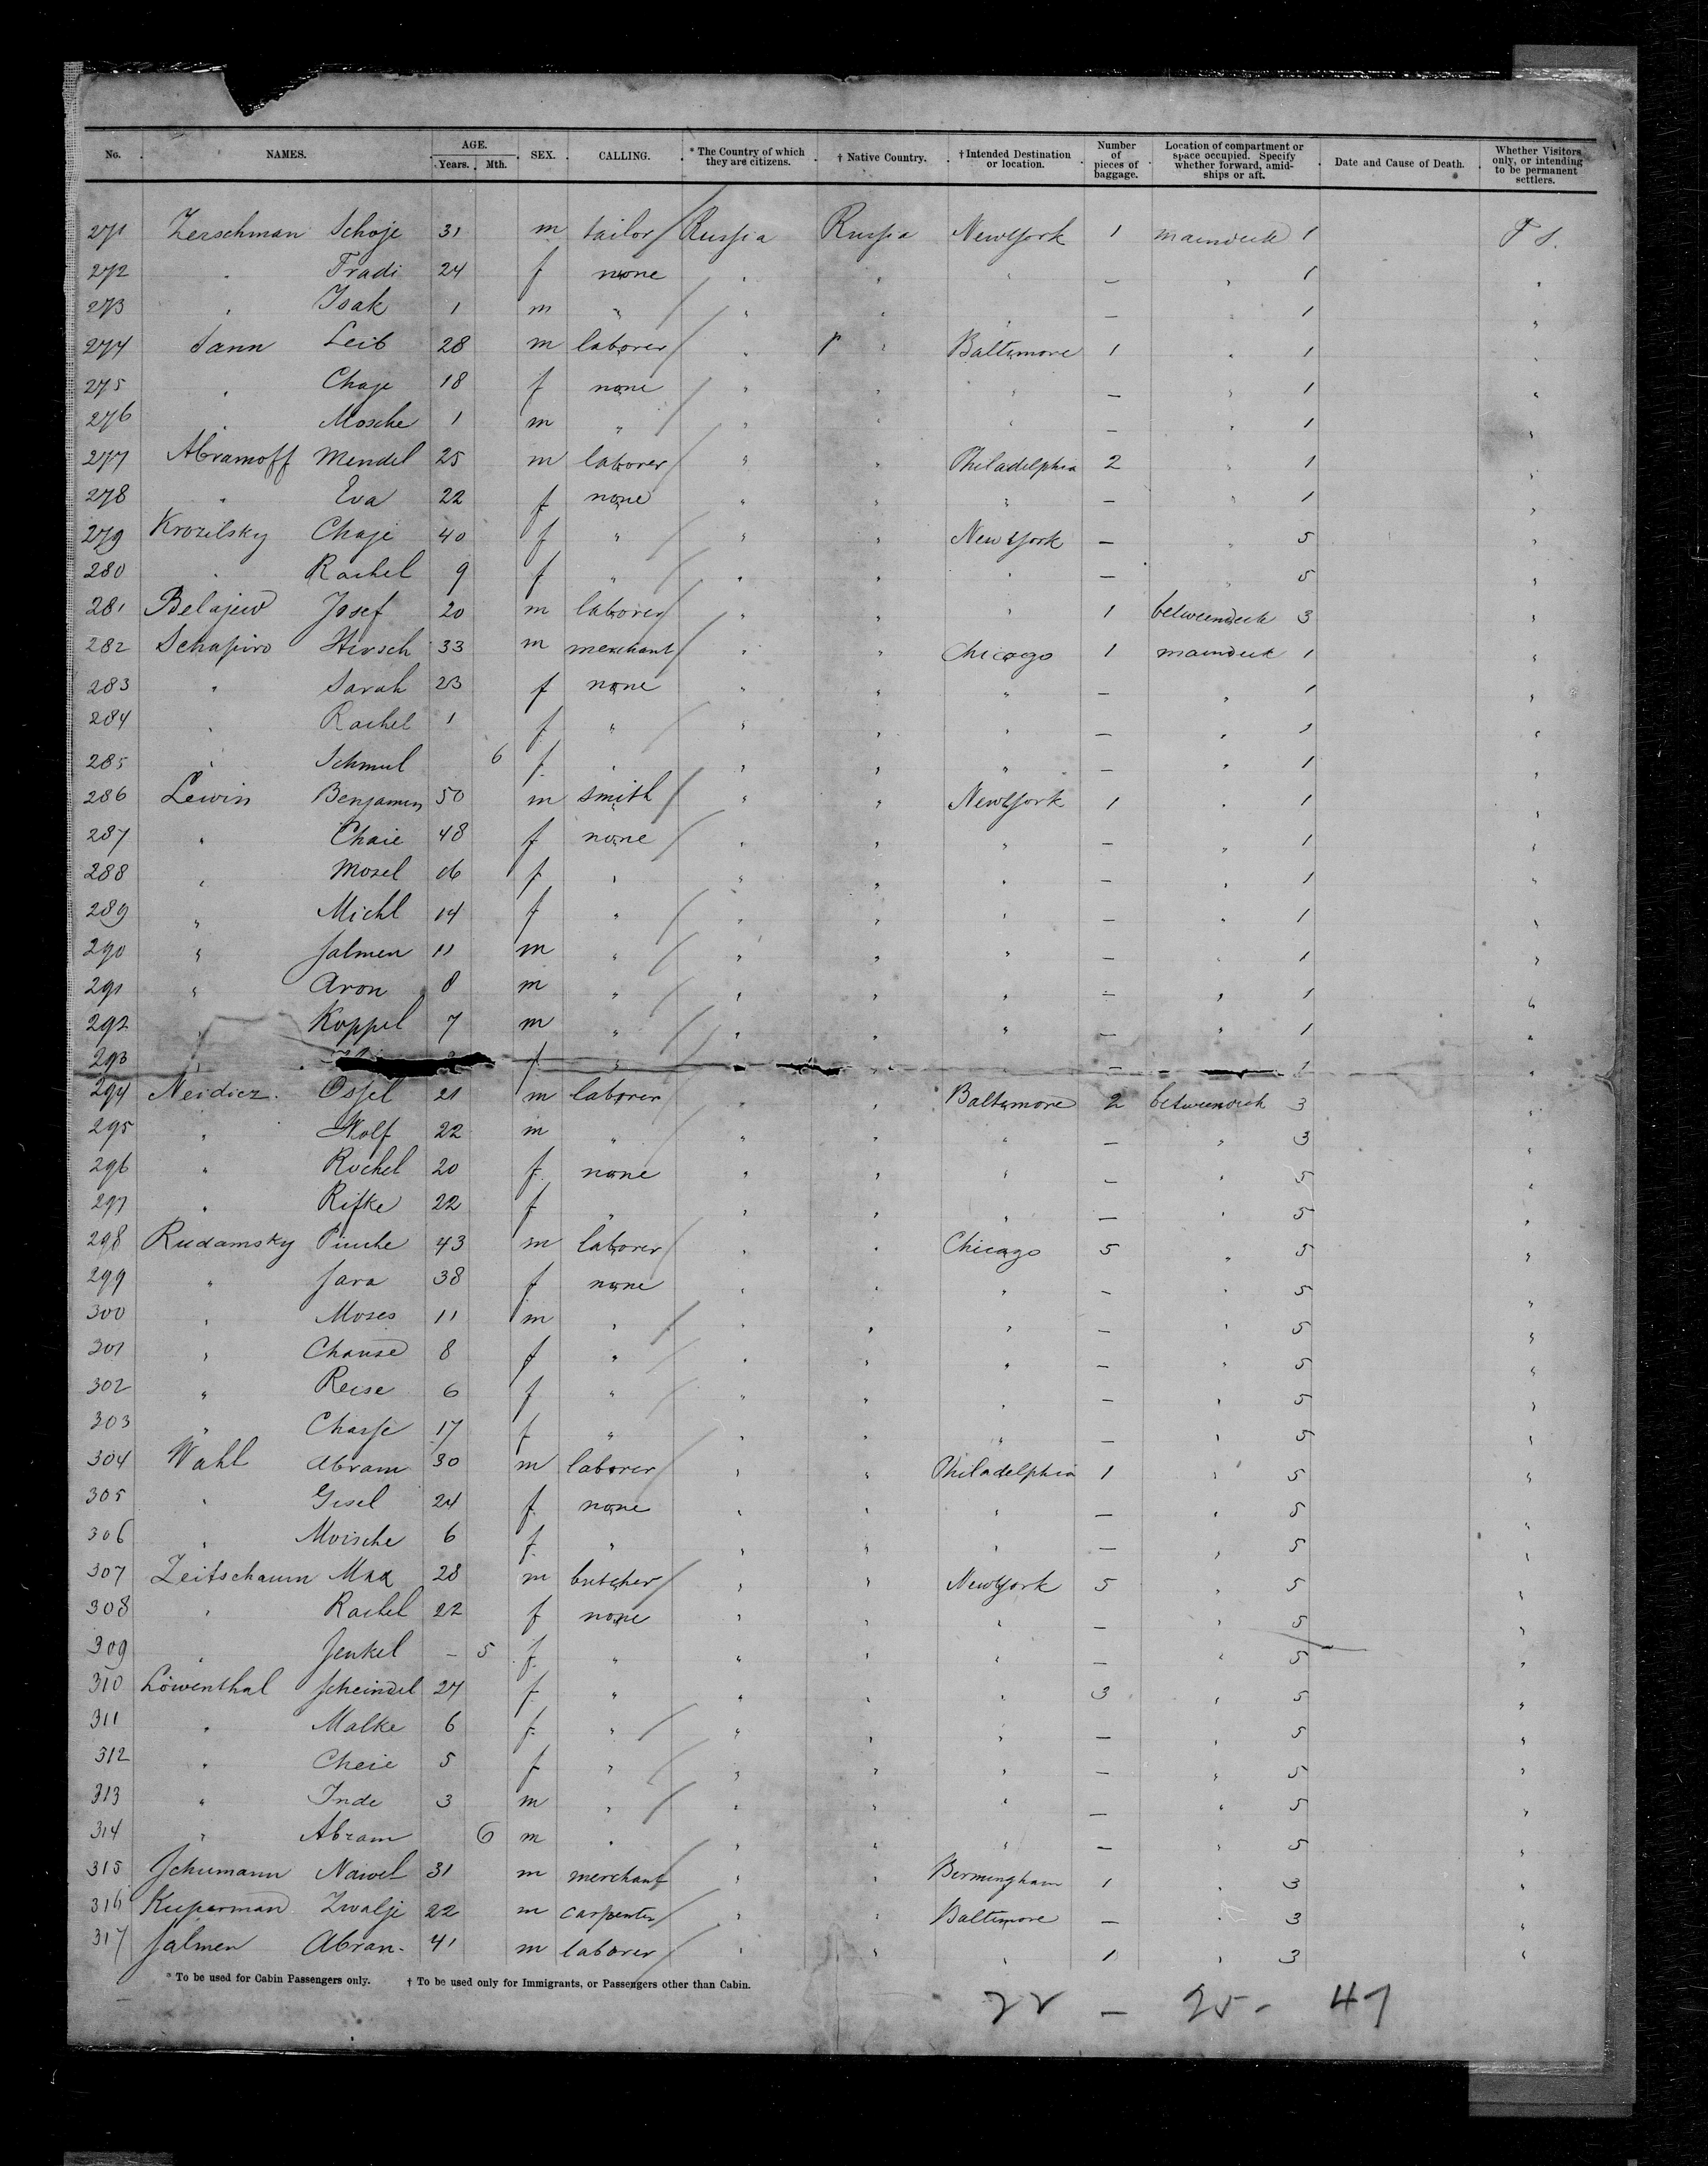 No. NAMES. AGE. Years. Mth. SEX. CALLING. * The Country of which they are citizens. † Native Country. † Intended Destination or location. Number of pieces of baggage. Location of compartment or space occupied. Specify whether forward, amidships or aft. Date and Cause of Death. Whether Visitors only, or intending to be permanent settlers.
271 Zerschman Schoje 31 m tailor Russia Russia New York 1 maindeck 1
272 " Fradi 24 f none " " " — " 1 "
273 " Isak 1 m " " " " — " 1 "
274 Leib 28 m laborer " " Baltimore 1 " 1 "
275 " Chaje 18 f none " " " — " 1 "
276 " Mosche 1 m " " " " — " 1 "
277 Abramoff Mendel 25 m laborer " " Philadelphia 2 " 1 "
278 " Eva 22 f none " " " — " 1 "
279 Krozilsky Chaje 40 f " " " New York — " 5 "
280 " Rachel 9 f " " " " — " 5 "
281 Belajew Josef 20 m laborer " " " 1 betweendeck 3 "
282 Schapiro Hirsch 33 m merchant " " Chicago 1 maindeck 1 "
283 " Sarah 23 f none " " " — " 1 "
284 " Rachel 1 f " " " " — " 1 "
285 " Schmul 6 f " " " " — " 1 "
286 Lewin Benjamin 50 m smith " " New York 1 " 1 "
287 " Chaie 48 f none " " " — " 1 "
288 " Mosel f " " " " — " 1 "
289 " Michl 14 f " " " " — " 1 "
290 " Salmen 11 m " " " " — " 1 "
291 " Aron 8 m " " " " — " 1 "
292 " Koppel 7 m " " " " — " 1 "
293 " f " " — 1 "
294 Neidicz Ossel 21 m laborer " " Baltimore 2 betweendeck 3 "
295 " Wolf 22 m " " " " — " 3 "
296 " Rochel 20 f none " " " — " 5 "
297 " Rifke 22 f " " " " — " 5 "
298 Rudamsky Pinche 43 m laborer " " Chicago 5 " 5 "
299 " Sara 38 f none " " " — " 5 "
300 " Moses 11 m " " " " — " 5 "
301 " Chause 8 f " " " " — " 5 "
302 " Reise 6 f " " " " — " 5 "
303 " Chasse 17 f " " " " — " 5 "
304 Wahl Abram 30 m laborer " " Philadelphia 1 " 5 "
305 " Gisel 24 f none " " " — " 5
306 " Moische 6 f " " " " — " 5 "
307 Zeitschaum Max 28 m butcher " " New York 5 " 5 "
308 " Rachel 22 f none " " " — " 5 "
309 " Jenkel — 5 f " " " " — " 5 "
310 Löwenthal Scheindel 27 f " " " " 3 " 5 "
311 " Malke 6 f " " " " — " 5 "
312 " Cheie 5 f " " " " — " 5 "
313 " Inde 3 m " " " " — " 5 "
314 " Abram 6 m " " " " — " 5 "
315 Schumann Nawel 31 m merchant " " Birmingham 1 " 3 "
316 Kuperman Zwalje 22 m carpenter " " Baltimore — " 3 "
317 Salmen Abran. 41 m laborer " " " 1 " 3 "
* To be used for Cabin Passengers only. † To be used only for Immigrants, or Passengers other than Cabin.
22 — 25 - 47